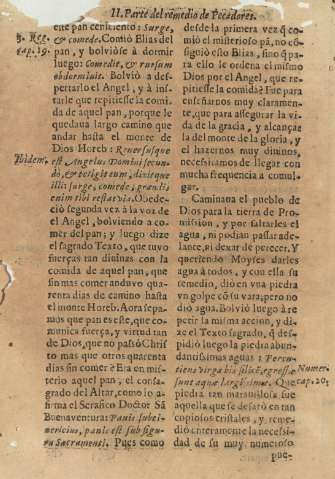 II. Parte del remedio de Pecadores.
ente pan ceniziento: Surge,
3. Reg.
cap. 19.
& comede. Comiò Elias del
pan, y bolviòse à dormir
luego: Comedit, & rursum
obdormiuit. Bolviò a des-
pertarlo el Angel, y à ins-
tarle que repitiesse la comi-
da de aquel pan, porque le
quedaua largo camino que
andar hasta el monte de
Dios Horeb: Reuersusque
Ibidem.
est Angelus Domini secun-
dò, & tetigit eum, dixitque
illi: surge, comede, grandis
enim tibi restat via. Obede-
ciò segunda vez à la voz de
el Angel, bolviendo a co-
mer del pan; y luego dize
el sagrado Texto, que tuvo
fuerças tan diuinas con la
comida de aquel pan, que
sin mas comer anduvo qua-
renta dias de camino hasta
el monte Horeb. Aora sepa-
mos que pan es este, que co-
munica fuerça, y virtud tan
de Dios, que no passò Chris-
to mas que otros quarenta
dias sin comer? Era en mis-
terio aquel pan, el consa-
grado del Altar, como lo a-
firma el Serafico Doctor Sã
Buenaventura: Panis subci-
nericius, panis est sub figu-
ra Sacramenti. Pues como
desde la primera vez q̃ co-
miò el misterioso pã, no cõ-
siguiò esso Elias, sino q̃ pa-
ra ello le ordena el mismo
Dios por el Angel, que re-
pitiesse la comida? Fue para
enseñarnos muy claramen-
te, que para assegurar la vi-
da de la gracia, y alcançar
la del monte de la gloria, y
el hazernos muy diuinos,
necessitamos de llegar con
mucha frequencia a comul-
gar.
Caminaua el pueblo de
Dios para la tierra de Pro-
mission, y por faltarles el
agua, ni podian passar ade-
lante, ni dexar de perecer. Y
queriendo Moyses darles
agua à todos, y con ella su
remedio, diò en vna piedra
vn golpe cõ su vara; pero no
diò agua. Bolviò luego à re-
petir la misma accion, y di-
ze el Texto sagrado, q̃ des-
pidiò luego la piedra abun-
dantissimas aguas: Percu-
tiens virga bis silicẽ, egressæ
Numer.
cap. 20.
sunt aquæ largissimæ. Que
piedra tan marauillosa fue
aquella que se desatò en tan
copiosos cristales, y reme-
diò enteramente la necessi-
dad de su muy numeroso
pue-